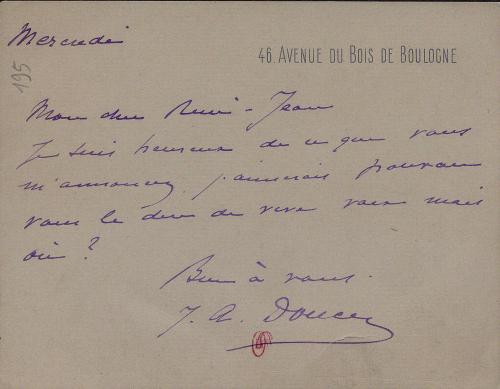 Mercredi
46. AVENUE DU BOIS DE BOULOGNE
195
Mon cher René-Jean
Je suis heureux de ce que vous
m'annoncez. j'aimerais pouvoir
vous le dire de vive voix mais
où ?
Bien à vous.
J. A. Doucet